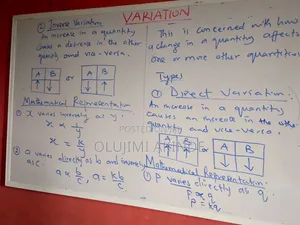 VARIATION
② Inverse Variation
An increase in a quantity
causes a decrease in the other
quantity and vice-versa.
A B or A B
↑ ↓ ↓ ↑
Mathematical Representation
① x varies inversely as y.
x ∝ 1/y
x = k/y
② a varies directly as b and inversely
as c.
a ∝ b/c, a = kb/c
This is concerned with how
a change in a quantity affects
one or more other quantities
Types
① Direct Variation:
An increase in a quantity
causes an increase in the other
quantity and vice-versa.
A B or A B
↑ ↑ ↓ ↓
Mathematical Representation:
① p varies directly as q
p ∝ q
p = kq
OLUJIMI